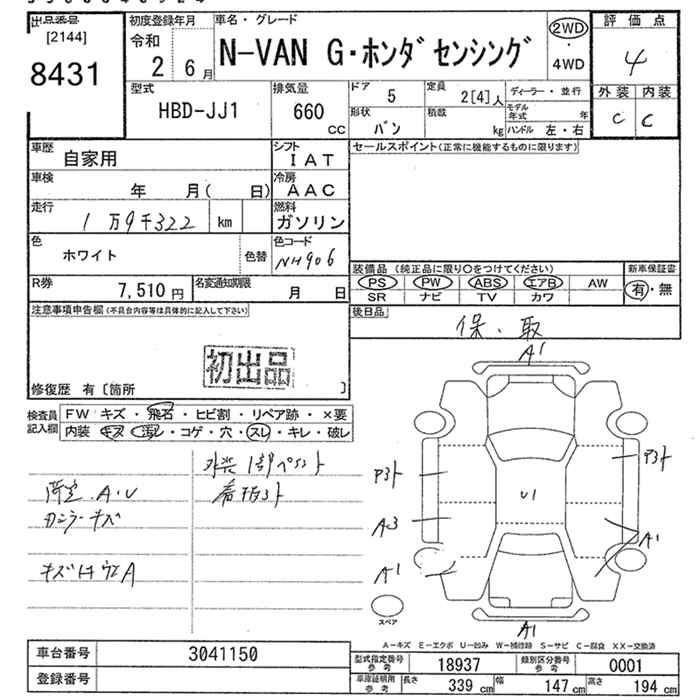 出品番号
[2144]
8431
初度登録年月
令和
2 6月
車名・グレード
N-VAN G・ホンダセンシング
2WD
・
4WD
評価点
4
外装 内装
C C
型式
HBD-JJ1
排気量
660
CC
ドア 5
定員 2[4]人
ディーラー・並行
形状 バン
積載 kg
モデル年式 年
ハンドル 左・右
車歴 自家用
シフト IAT
セールスポイント(正常に機能するものに限ります)
車検 年 月( 日)
冷房 AAC
走行 1万9千322 km
燃料 ガソリン
色 ホワイト
色替
色コード NH906
装備品 (純正品に限り○をつけてください)
新車保証書
PS PW ABS エアB AW
SR ナビ TV カワ
有・無
R券 7,510円
名変通知期限 月 日
後日品
保・取
注意事項申告欄(不具合内容等は具体的に記入して下さい)
初出品
修復歴 有〔箇所 〕
検査員記入欄
FW キズ・飛石・ヒビ割・リペア跡・×要
内装 キズ・汚レ・コゲ・穴・スレ・キレ・破レ
A1
P3ト
P3ト
U1
A3
A1
A1
A1
スペア
A-キズ E-エクボ U-凹み W-補修跡 S-サビ C-腐食 XX-交換済
車台番号 3041150
登録番号
型式指定番号 参考 18937
類別区分番号 参考 0001
車庫証明用 参考 長さ 339 cm 幅 147 cm 高さ 194 cm